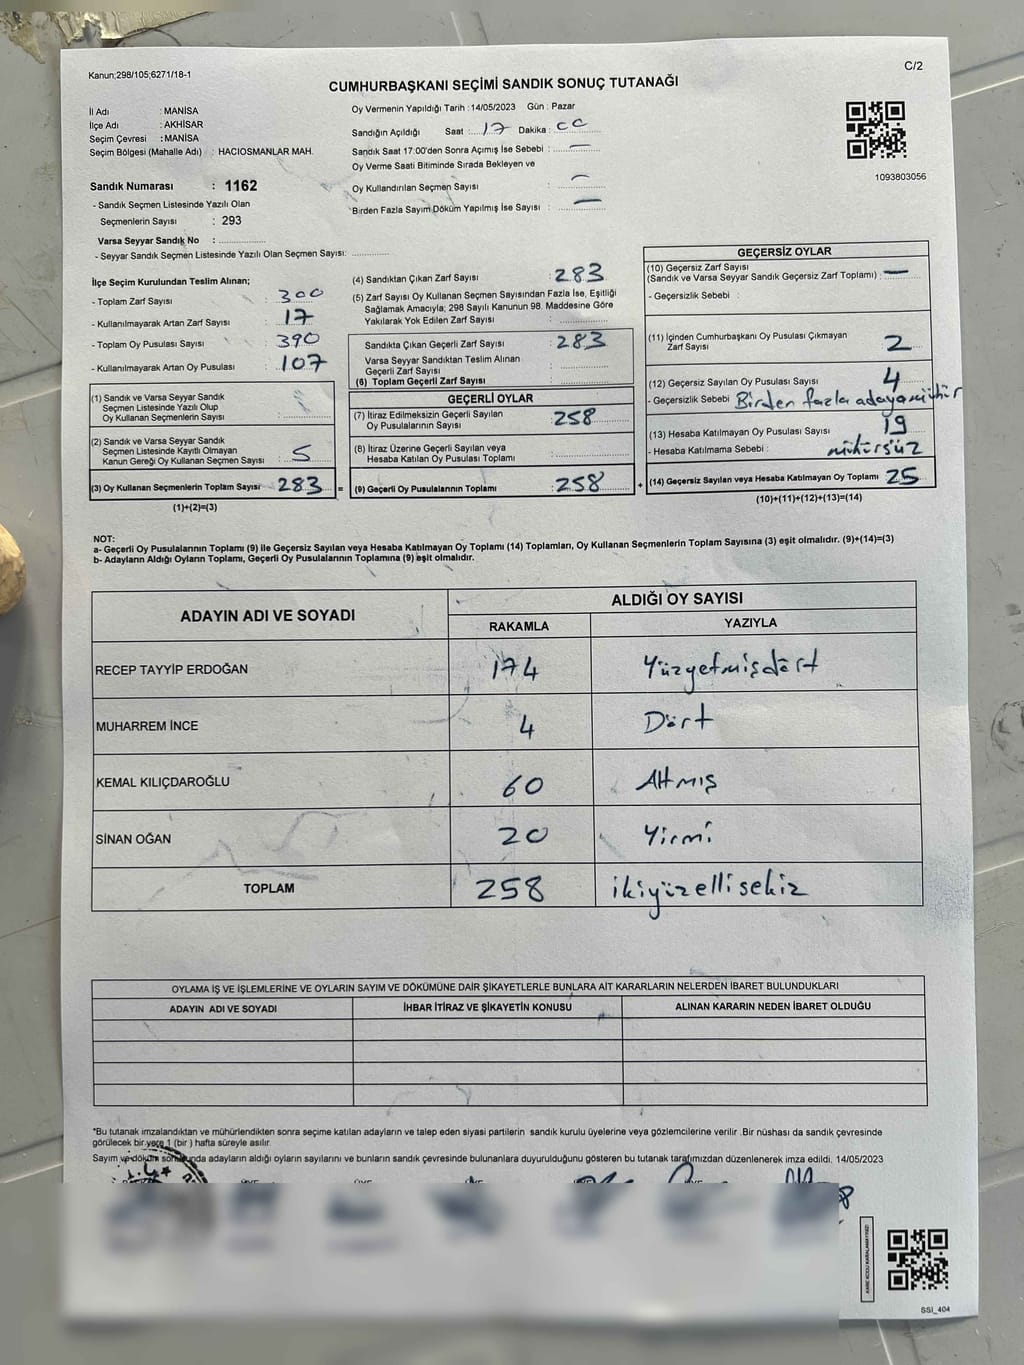 Kanun;298/105;6271/18-1
C/2
CUMHURBAŞKANI SEÇİMİ SANDIK SONUÇ TUTANAĞI
İl Adı : MANİSA
İlçe Adı : AKHİSAR
Seçim Çevresi : MANİSA
Seçim Bölgesi (Mahalle Adı) : HACIOSMANLAR MAH.
Sandık Numarası : 1162
- Sandık Seçmen Listesinde Yazılı Olan
Seçmenlerin Sayısı : 293
Varsa Seyyar Sandık No :
- Seyyar Sandık Seçmen Listesinde Yazılı Olan Seçmen Sayısı:
Oy Vermenin Yapıldığı Tarih :14/05/2023 Gün : Pazar
Sandığın Açıldığı Saat : 17 Dakika : 00
Sandık Saat 17:00'den Sonra Açımış İse Sebebi : —
Oy Verme Saati Bitiminde Sırada Bekleyen ve
Oy Kullandırılan Seçmen Sayısı : —
Birden Fazla Sayım Döküm Yapılmış İse Sayısı : —
1093803056
İlçe Seçim Kurulundan Teslim Alınan;
- Toplam Zarf Sayısı : 300
- Kullanılmayarak Artan Zarf Sayısı : 17
- Toplam Oy Pusulası Sayısı : 390
- Kullanılmayarak Artan Oy Pusulası : 107
(1) Sandık ve Varsa Seyyar Sandık
Seçmen Listesinde Yazılı Olup
Oy Kullanan Seçmenlerin Sayısı :
(2) Sandık ve Varsa Seyyar Sandık
Seçmen Listesinde Kayıtlı Olmayan
Kanun Gereği Oy Kullanan Seçmen Sayısı : 5
(3) Oy Kullanan Seçmenlerin Toplam Sayısı : 283 =
(1)+(2)=(3)
(4) Sandıktan Çıkan Zarf Sayısı : 283
(5) Zarf Sayısı Oy Kullanan Seçmen Sayısından Fazla İse, Eşitliği
Sağlamak Amacıyla; 298 Sayılı Kanunun 98. Maddesine Göre
Yakılarak Yok Edilen Zarf Sayısı :
Sandıkta Çıkan Geçerli Zarf Sayısı : 283
Varsa Seyyar Sandıktan Teslim Alınan
Geçerli Zarf Sayısı :
(6) Toplam Geçerli Zarf Sayısı :
GEÇERLİ OYLAR
(7) İtiraz Edilmeksizin Geçerli Sayılan
Oy Pusulalarının Sayısı : 258
(8) İtiraz Üzerine Geçerli Sayılan veya
Hesaba Katılan Oy Pusulası Toplamı :
(9) Geçerli Oy Pusulalarının Toplamı : 258 +
GEÇERSİZ OYLAR
(10) Geçersiz Zarf Sayısı
(Sandık ve Varsa Seyyar Sandık Geçersiz Zarf Toplamı) : —
- Geçersizlik Sebebi :
(11) İçinden Cumhurbaşkanı Oy Pusulası Çıkmayan
Zarf Sayısı : 2
(12) Geçersiz Sayılan Oy Pusulası Sayısı : 4
- Geçersizlik Sebebi : Birden fazla adaya mühür
(13) Hesaba Katılmayan Oy Pusulası Sayısı : 19
- Hesaba Katılmama Sebebi : mühürsüz
(14) Geçersiz Sayılan veya Hesaba Katılmayan Oy Toplamı 25
(10)+(11)+(12)+(13)=(14)
NOT:
a- Geçerli Oy Pusulalarının Toplamı (9) ile Geçersiz Sayılan veya Hesaba Katılmayan Oy Toplamı (14) Toplamları, Oy Kullanan Seçmenlerin Toplam Sayısına (3) eşit olmalıdır. (9)+(14)=(3)
b- Adayların Aldığı Oyların Toplamı, Geçerli Oy Pusulalarının Toplamına (9) eşit olmalıdır.
ADAYIN ADI VE SOYADI
ALDIĞI OY SAYISI
RAKAMLA YAZIYLA
RECEP TAYYİP ERDOĞAN 174 Yüzyetmişdört
MUHARREM İNCE 4 Dört
KEMAL KILIÇDAROĞLU 60 Altmış
SİNAN OĞAN 20 Yirmi
TOPLAM 258 ikiyüzellisekiz
OYLAMA İŞ VE İŞLEMLERİNE VE OYLARIN SAYIM VE DÖKÜMÜNE DAİR ŞİKAYETLERLE BUNLARA AİT KARARLARIN NELERDEN İBARET BULUNDUKLARI
ADAYIN ADI VE SOYADI İHBAR İTİRAZ VE ŞİKAYETİN KONUSU ALINAN KARARIN NEDEN İBARET OLDUĞU
*Bu tutanak imzalandıktan ve mühürlendikten sonra seçime katılan adayların ve talep eden siyasi partilerin sandık kurulu üyelerine veya gözlemcilerine verilir .Bir nüshası da sandık çevresinde
görülecek bir yere 1 (bir ) hafta süreyle asılır.
Sayım ve döküm sonunda adayların aldığı oyların sayılarını ve bunların sandık çevresinde bulunanlara duyurulduğunu gösteren bu tutanak tarafımızdan düzenlenerek imza edildi. 14/05/2023
SSI_404